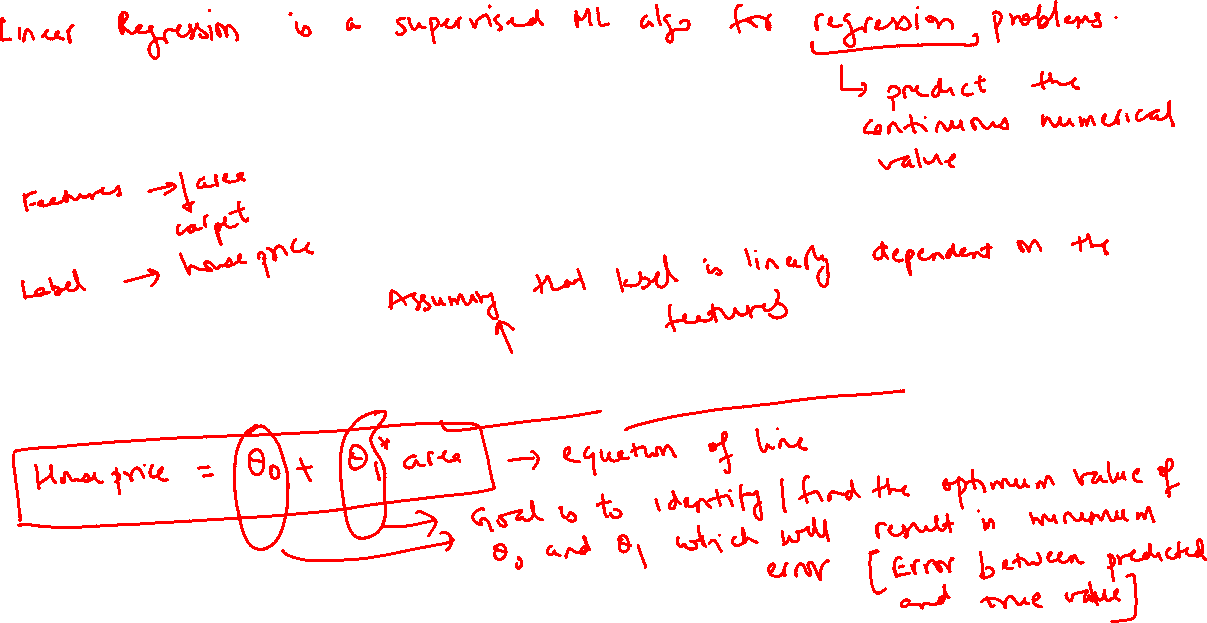 Linear Regression is a supervised ML algo for regression problems.
↳ predict the
continuous numerical
value
Features → area
carpet
Label → house price
Assuming that label is linearly dependent on the
features
House price = θ0 + θ1 * area → equation of line
Goal is to identify / find the optimum value of
θ0 and θ1 which will result in minimum
error [Error between predicted
and true value]